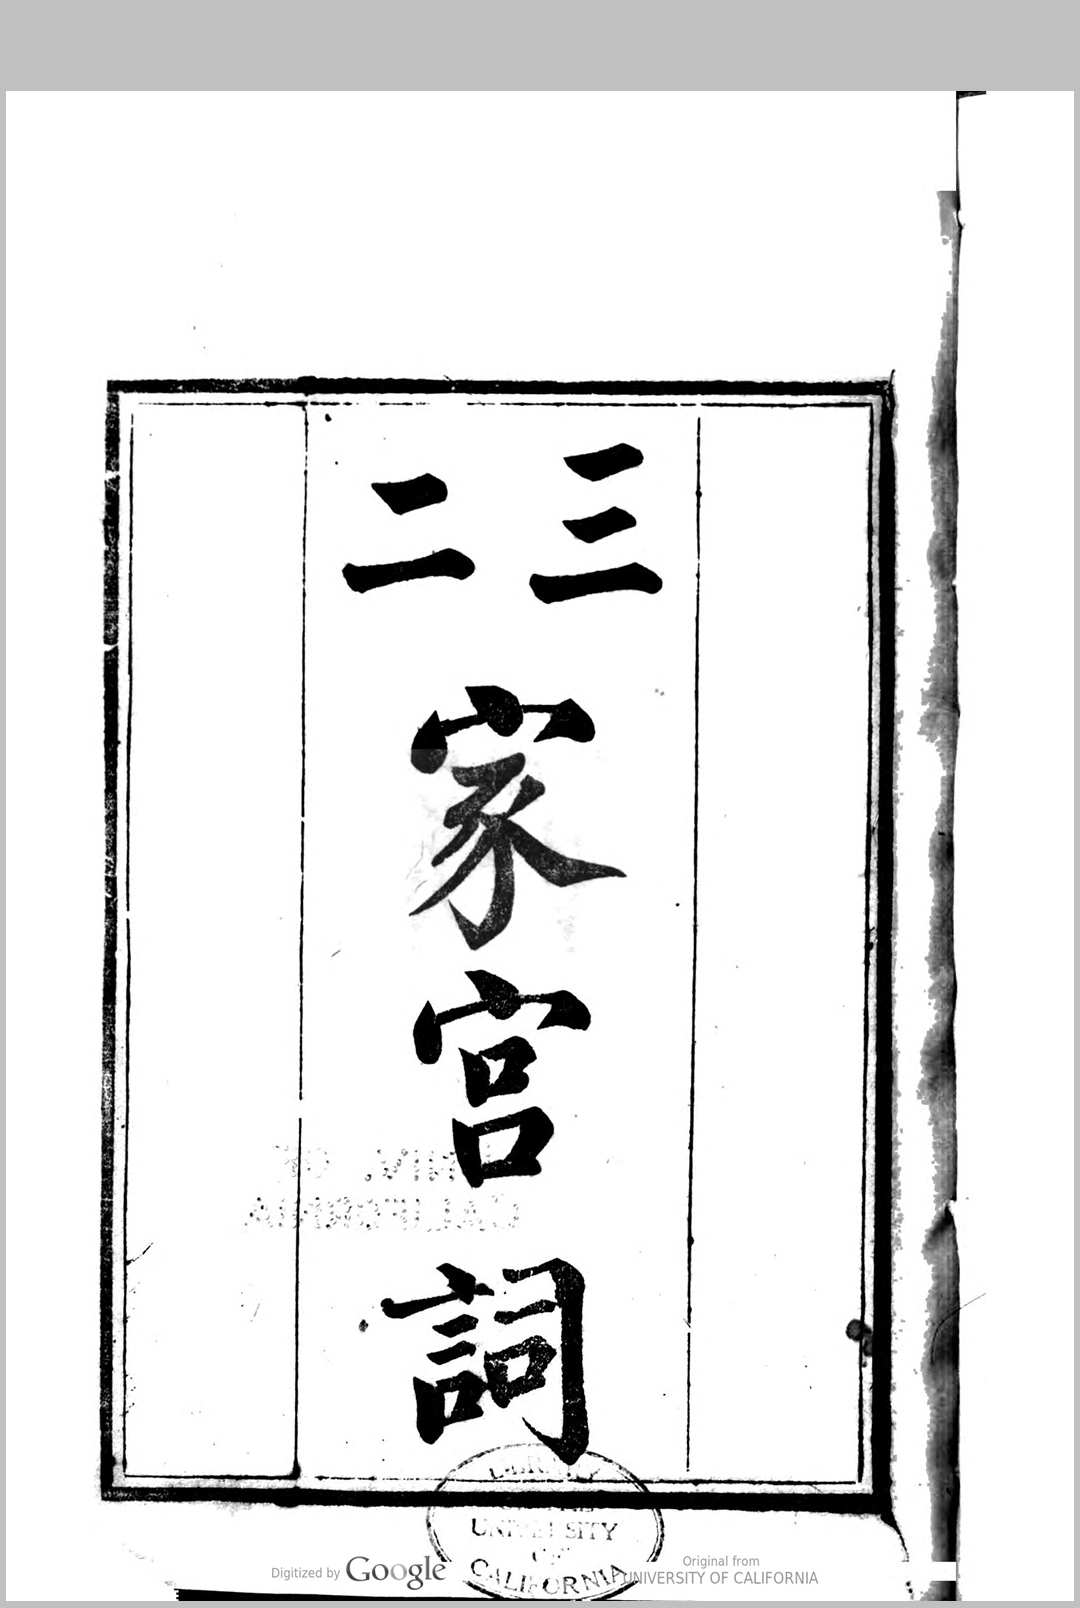 三二
家
宮
詞
UNIVERSITY
CALIFORNIA
Digitized by Google
Original from
UNIVERSITY OF CALIFORNIA